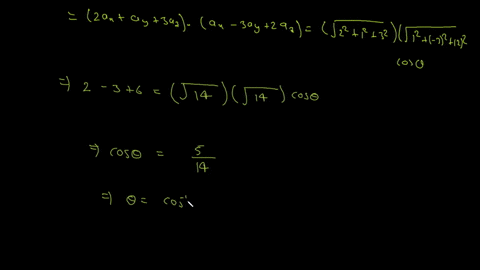 = (2ax + ay + 3az) . (ax - 3ay + 2az) = (√2²+1²+3²) (√1²+(-3)²+(2)²
cosθ
⇒ 2 - 3 + 6 = (√14) (√14) cosθ
⇒ cosθ = 5/14
⇒ θ = cos⁻